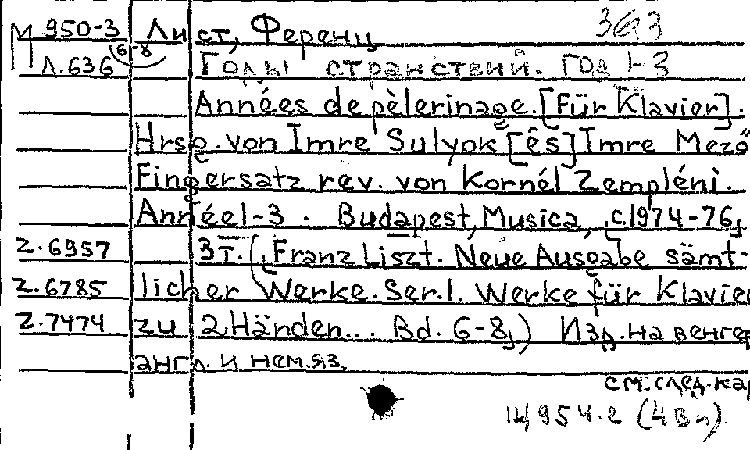 М 950-3 Лист, Ференц 363
6-8
Л.636 Годы странствий. Год 1-3
Années de pèlerinage. [Für Klavier].
Hrsg. von Imre Sulyok [és] Imre Mező
Fingersatz rev. von Kornél Zempléni.
Année 1-3. Budapest, Musica, c.1974-76,
Z.6957 3т. (Franz Liszt. Neue Ausgabe sämt-
Z.6785 licher Werke. Ser.1. Werke für Klavier
Z.7474 zu 2 Händen... Bd. 6-8,) Изд. на венгер
англ. и нем. яз.
см. след. кар
14954-2